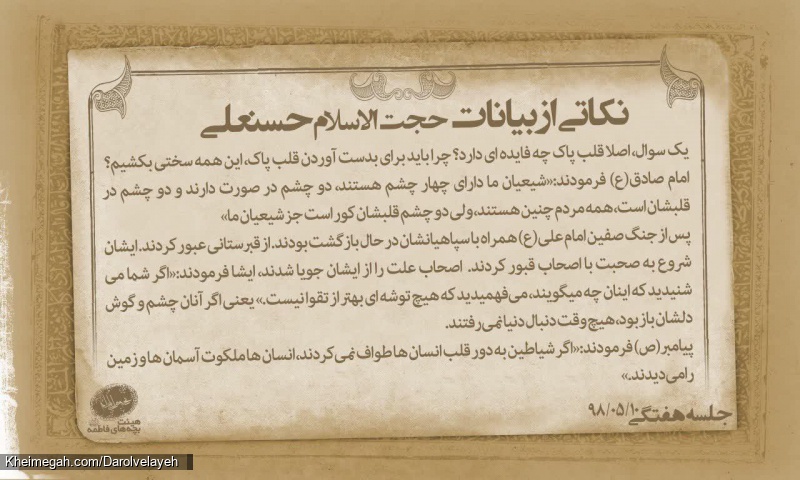 نکاتی از بیانات حجت الاسلام حسنعلی
یک سوال، اصلا قلب پاک چه فایده ای دارد؟ چرا باید برای بدست آوردن قلب پاک، این همه سختی بکشیم؟
امام صادق(ع) فرمودند:«شیعیان ما دارای چهار چشم هستند، دو چشم در صورت دارند و دو چشم در
قلبشان است، همه مردم چنین هستند، ولی دو چشم قلبشان کور است جز شیعیان ما»
پس از جنگ صفین امام علی(ع) همراه با سپاهیانشان در حال بازگشت بودند. از قبرستانی عبور کردند. ایشان
شروع به صحبت با اصحاب قبور کردند. اصحاب علت را از ایشان جویا شدند، ایشا فرمودند:«اگر شما می
شنیدید که اینان چه میگویند، می‌فهمیدید که هیچ توشه ای بهتر از تقوا نیست.» یعنی اگر آنان چشم و گوش
دلشان باز بود، هیچ وقت دنبال دنیا نمی رفتند.
پیامبر(ص) فرمودند:«اگر شیاطین به دور قلب انسان ها طواف نمی کردند، انسان ها ملکوت آسمان ها و زمین
را می دیدند.»
جلسه هفتگی ۹۸/۰۵/۱۰
هیئت
بچه‌های فاطمه
Kheimegah.com/Darolvelayeh